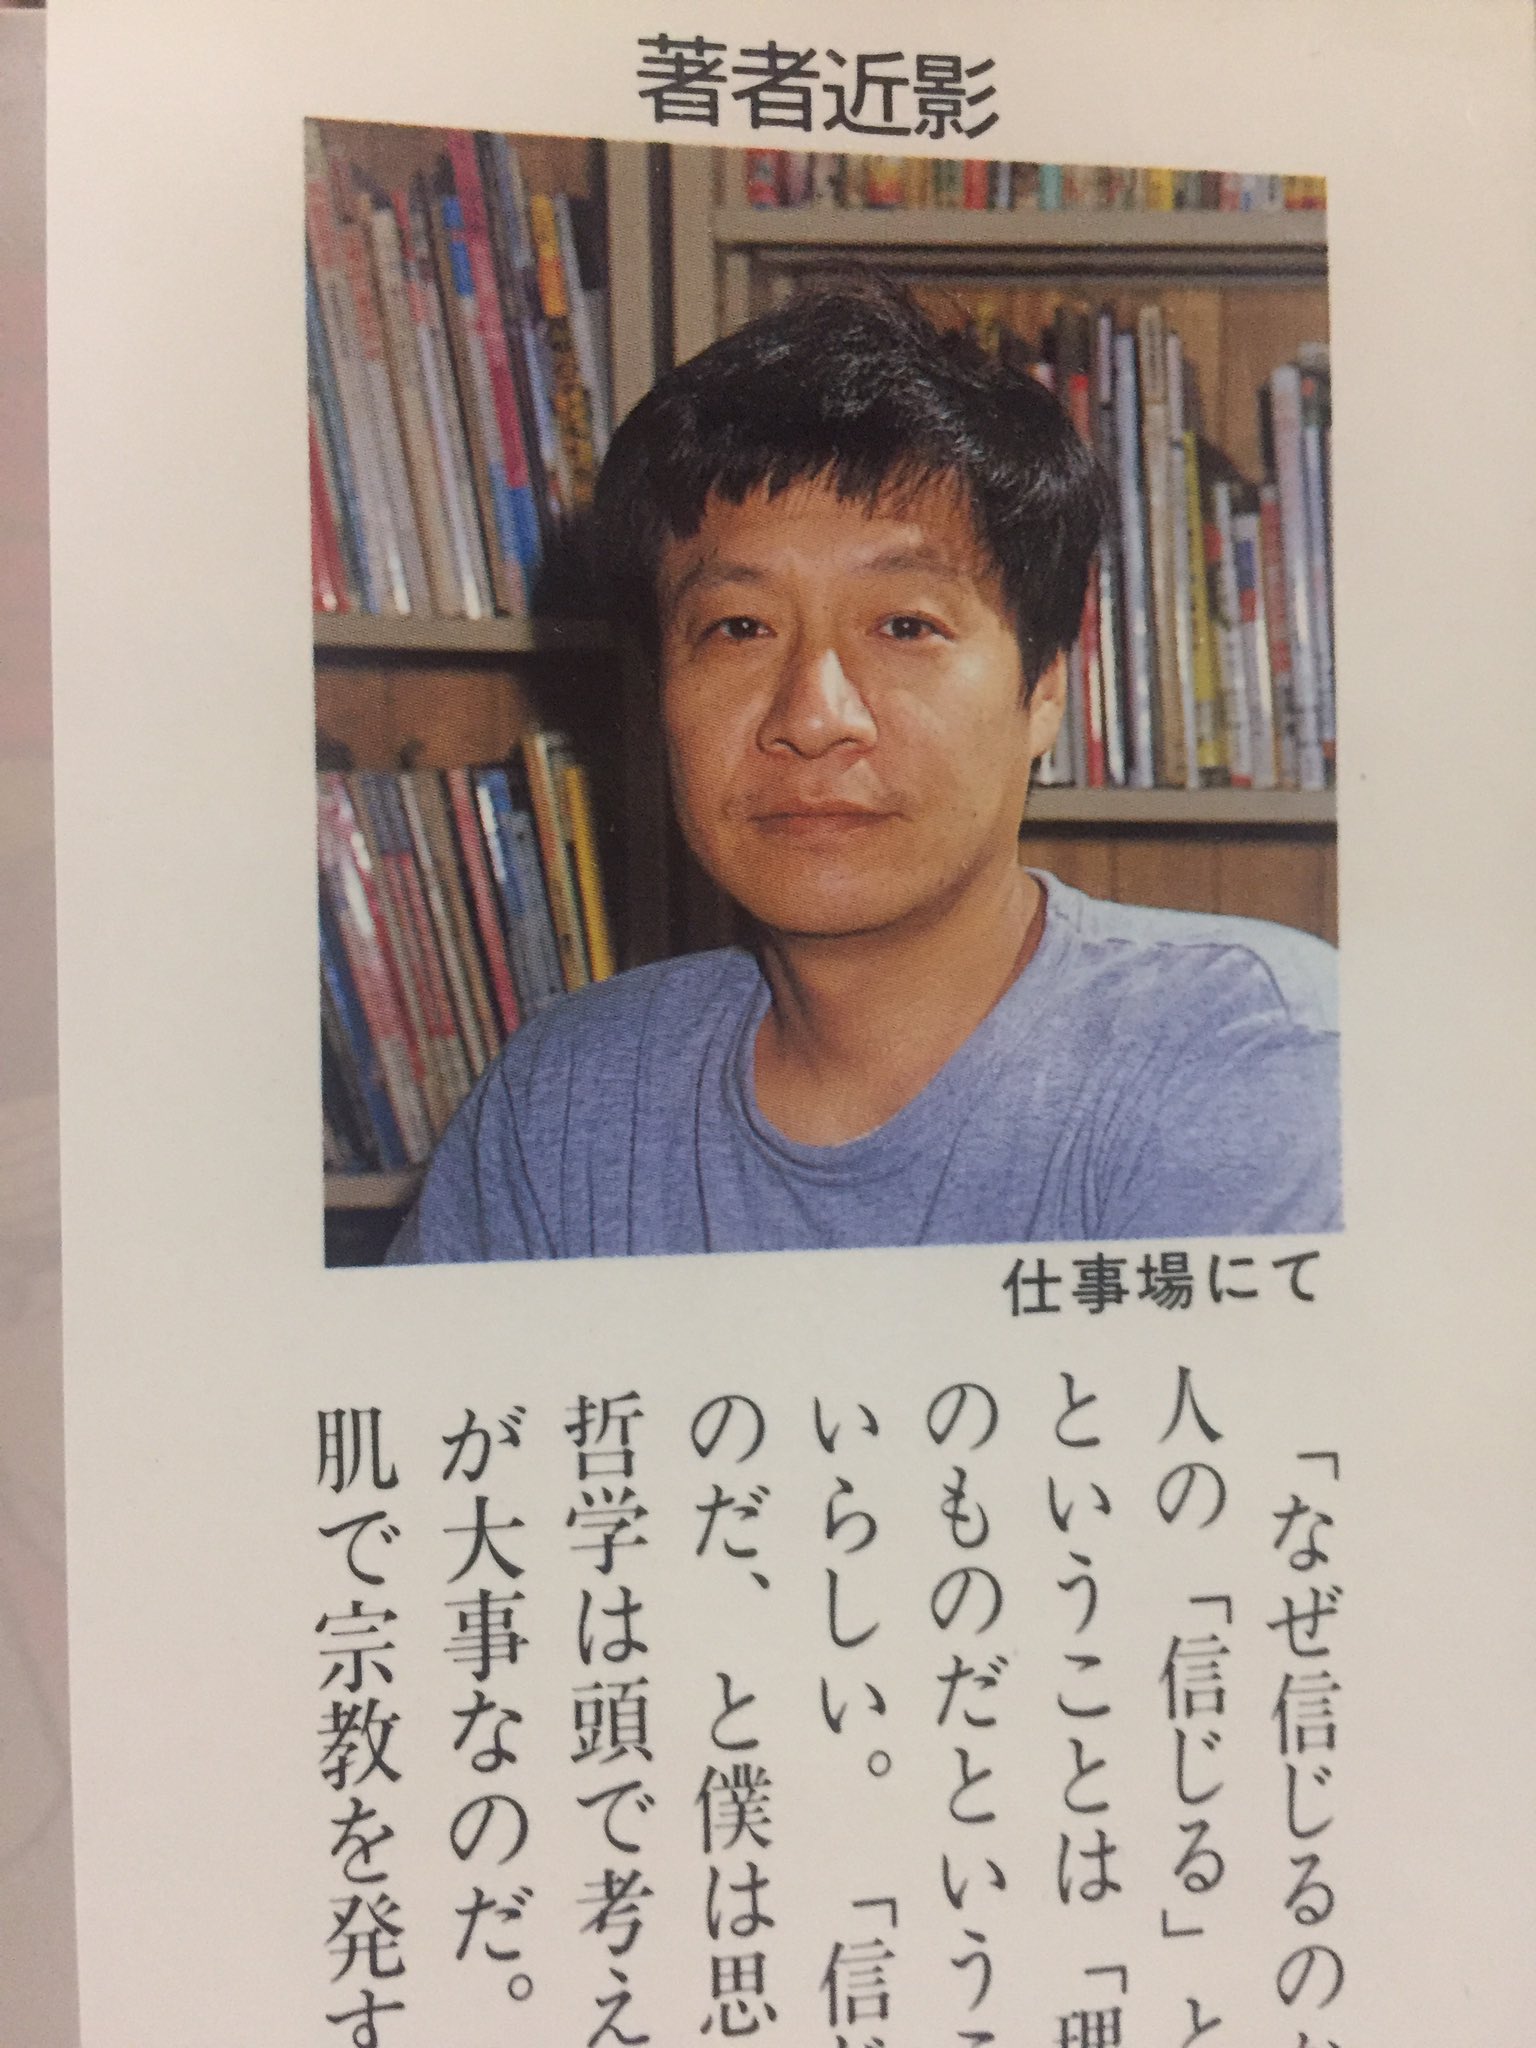 著者近影
仕事場にて
「なぜ信じるの
人の「信じる」と
ということは「理
のものだという
いらしい。「信
のだ、と僕は思
哲学は頭で考え
が大事なのだ。
肌で宗教を発す